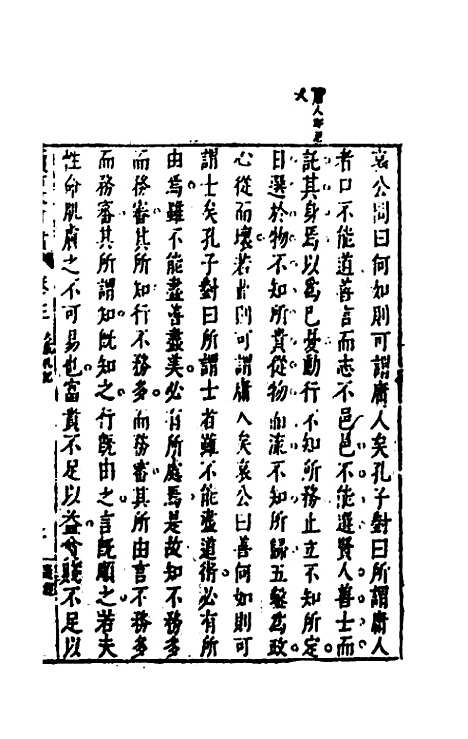 哀公問曰何如則可謂庸人矣孔子對曰所謂庸人
者口不能道善言而志不邑邑不能選賢人善士而
託其身焉以爲己憂動行不知所務止立不知所定
日選於物不知所貴從物而流不知所歸五鑿爲政
心從而壞若此則可謂庸人矣哀公曰善何如則可
謂士矣孔子對曰所謂士者雖不能盡道術必有所
由焉雖不能盡善盡美必有所處焉是故知不務多
而務審其所知行不務多而務審其所由言不務多
而務審其所謂知既知之行既由之言既順之若夫
性命肌膚之不可易也富貴不足以益貧賤不足以